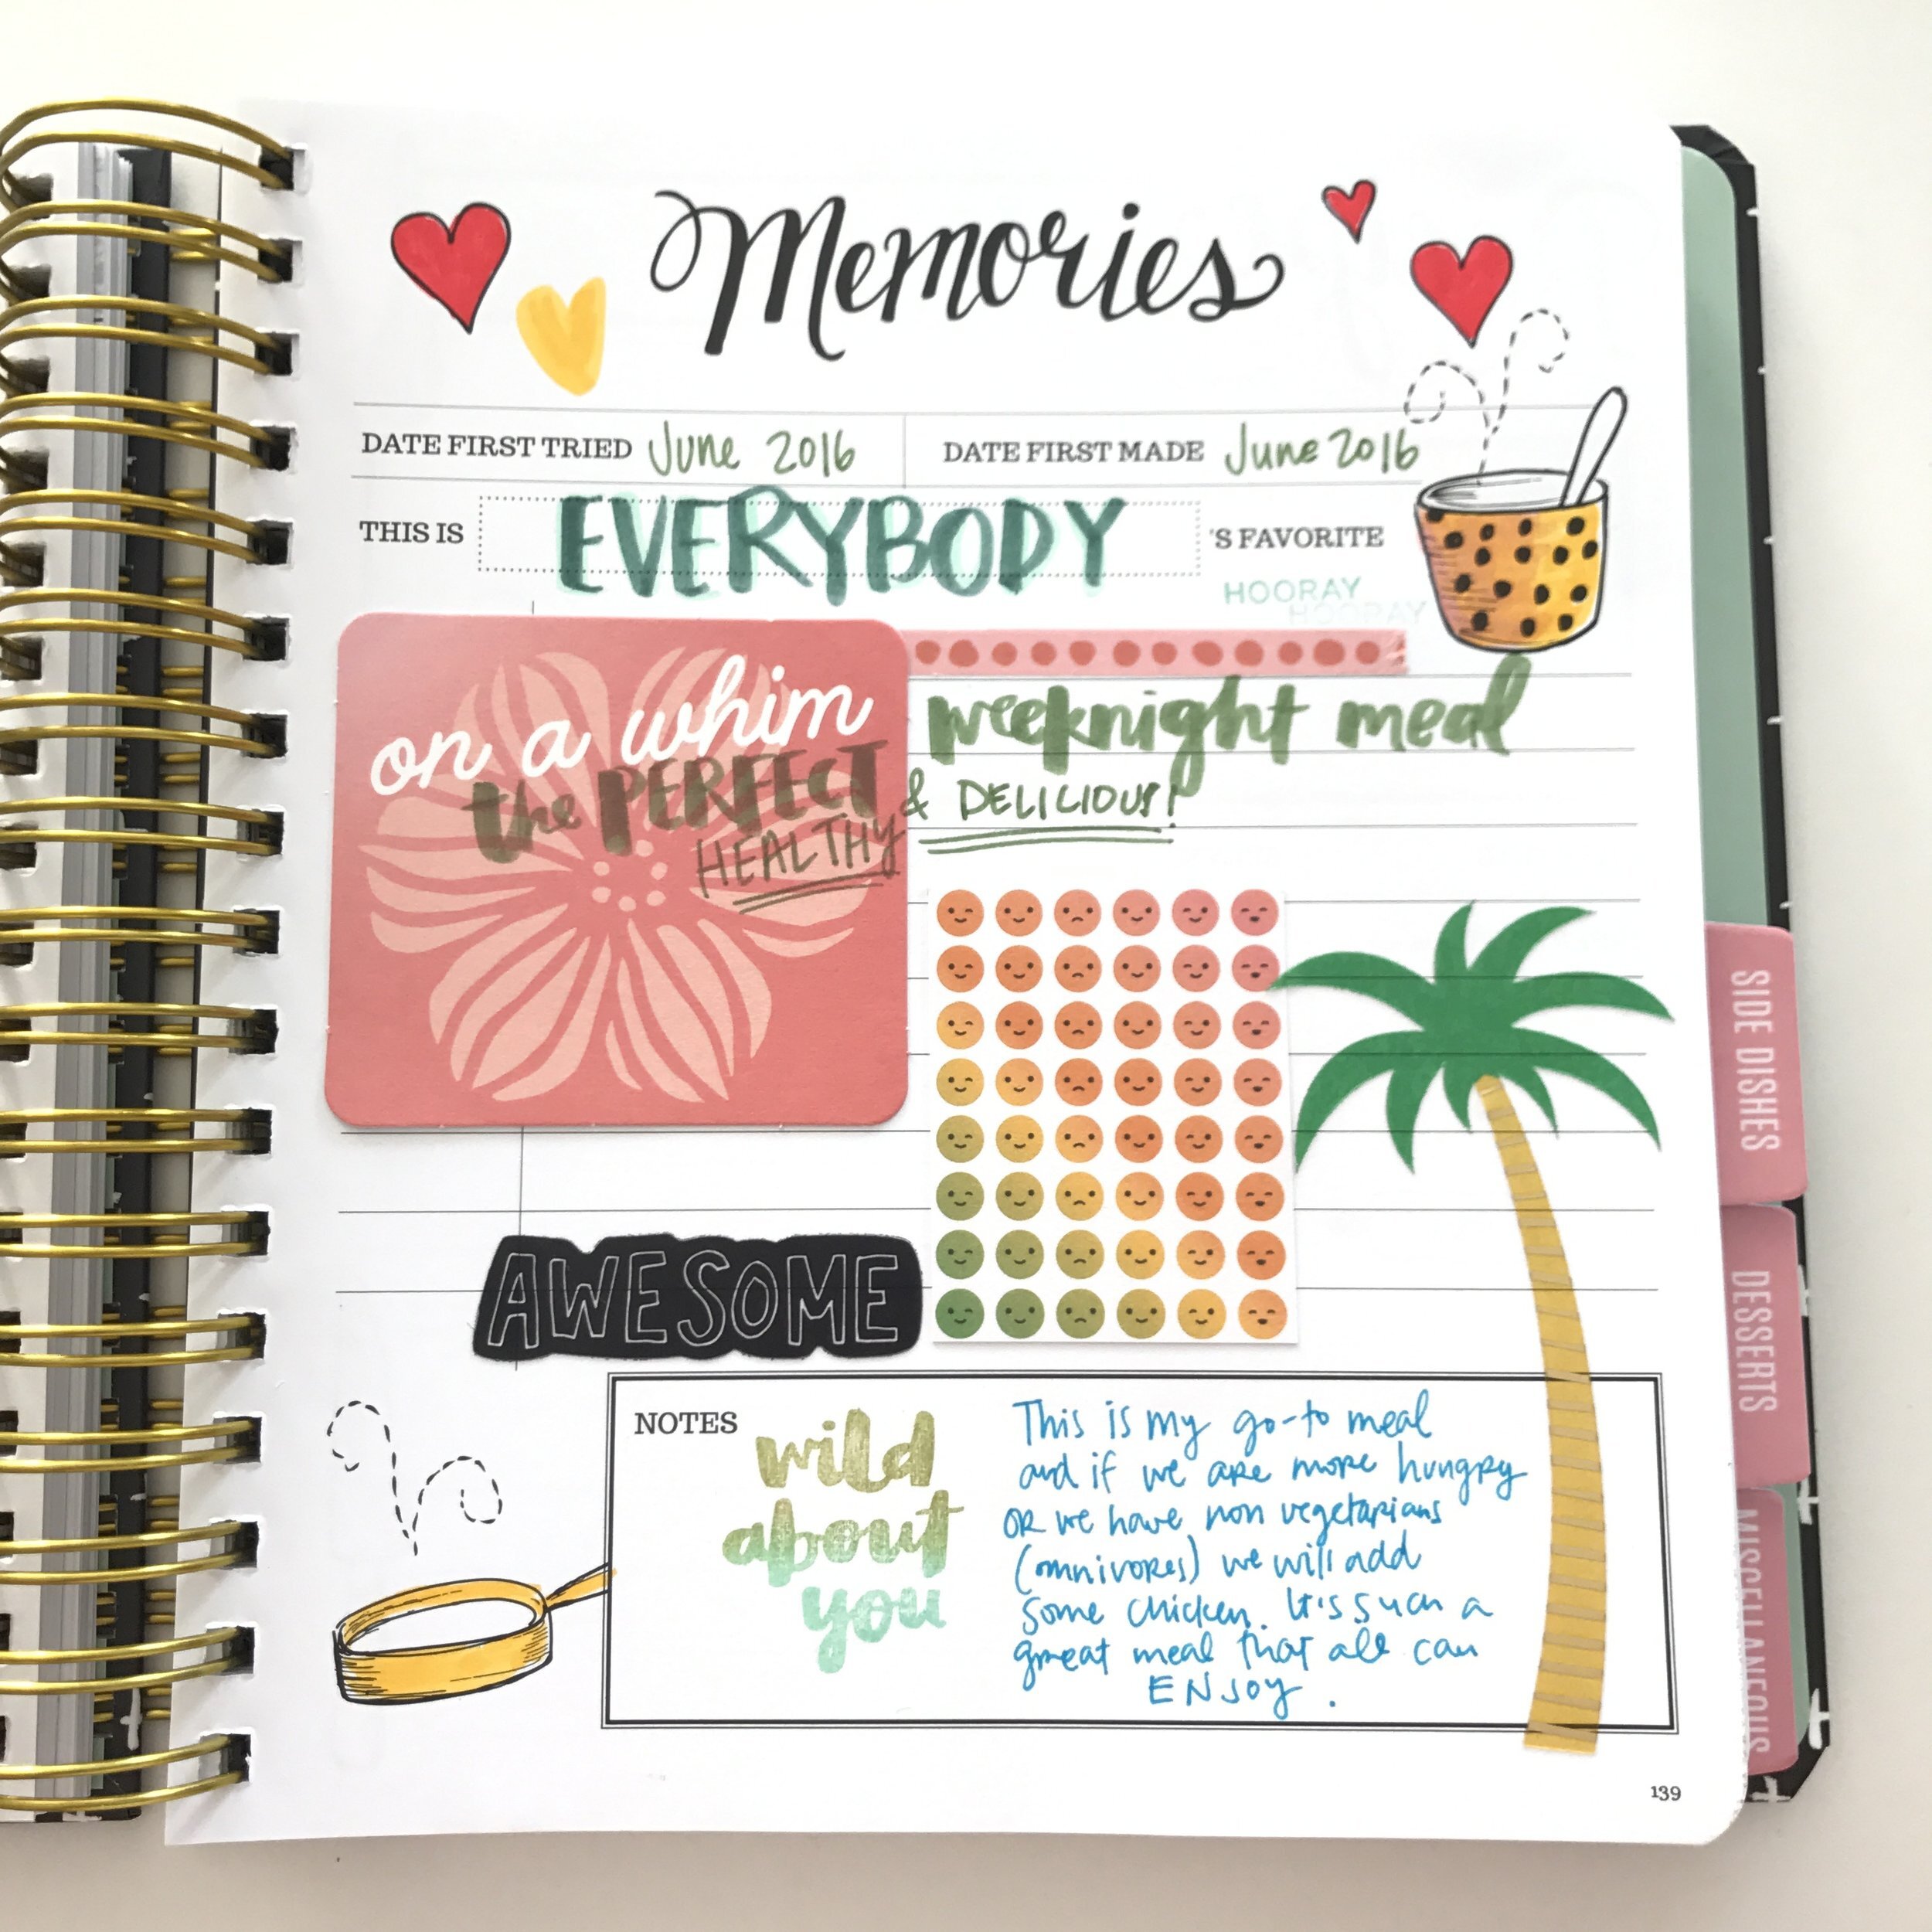 Memories
DATE FIRST TRIED June 2016
DATE FIRST MADE June 2016
THIS IS EVERYBODY 'S FAVORITE
HOORAY
HOORAY
on a whim
the PERFECT weeknight meal
HEALTHY & DELICIOUS!
AWESOME
NOTES
wild
about
you
This is my go-to meal
and if we are more hungry
OR we have non vegetarians
(omnivores) we will add
some chicken. It's such a
great meal that all can
ENJOY.
139
SIDE DISHES
DESSERTS
MISCELLANEOUS